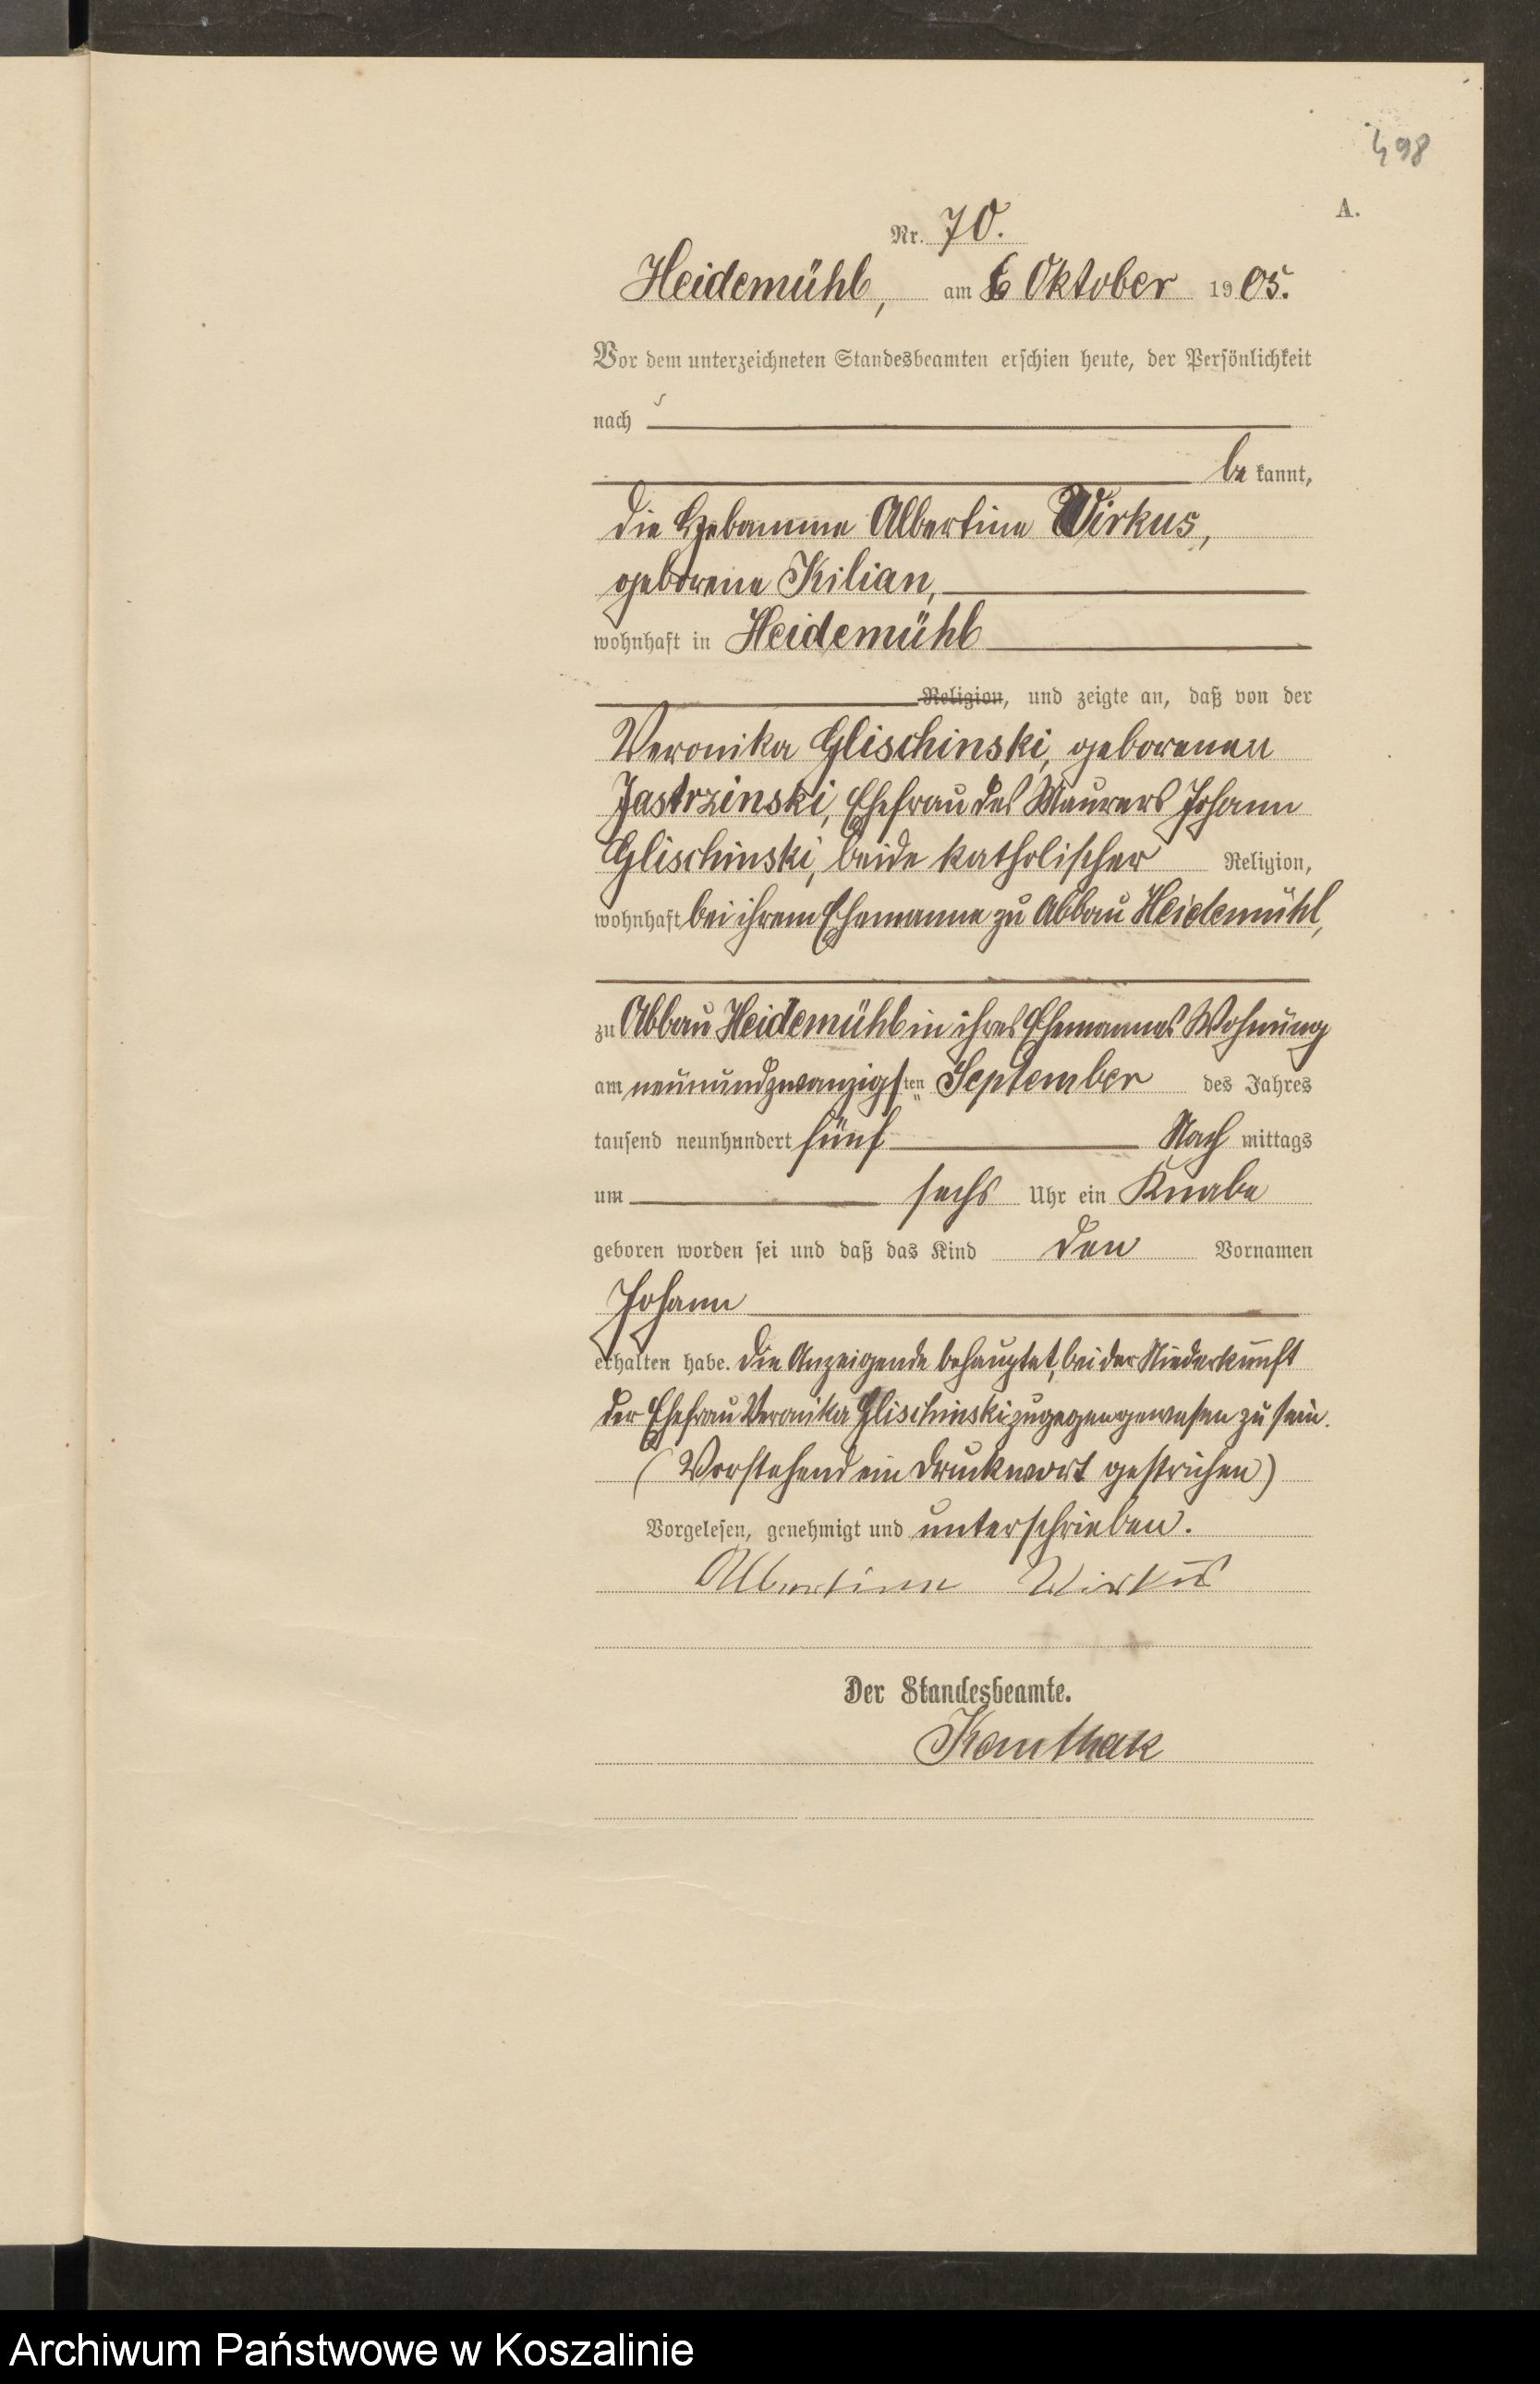 498
A.
Nr. 70.
Heidemühl, am 6 Oktober 1905.
Vor dem unterzeichneten Standesbeamten erschien heute, der Persönlichkeit
nach
be kannt,
die Hebamme Albertine Wirkus,
geborene Kilian,
wohnhaft in Heidemühl
Religion, und zeigte an, daß von der
Veronika Glischinski, geborenen
Jastrzinski, Ehefrau des Maurers Johann
Glischinski, beide katholischer Religion,
wohnhaft bei ihrem Ehemanne zu Abbau Heidemühl,
zu Abbau Heidemühl in ihres Ehemannes Wohnung
am neunundzwanzigsten September des Jahres
tausend neunhundert fünf Nach mittags
um sechs Uhr ein Knabe
geboren worden sei und daß das Kind den Vornamen
Johann
erhalten habe. Die Anzeigende behauptet, bei der Niederkunft
der Ehefrau Veronika Glischinski zugegen gewesen zu sein.
(Vorstehend ein Druckwort gestrichen)
Vorgelesen, genehmigt und unterschrieben.
Albertine Wirkus
Der Standesbeamte.
Kauthak
Archiwum Państwowe w Koszalinie